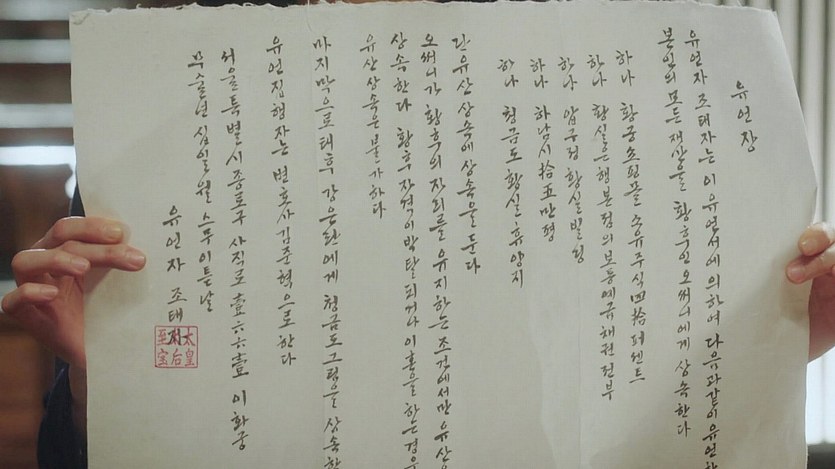 유언장
유언자 조태자는 이 유언서에 의하여 다음과 같이 유언한
본인의 모든 재산을 황후인 오써니에게 상속한다
하나 황궁쇼핑몰 소유주식 四拾퍼센트
하나 황실은행본점의 보통예금 채권 전부
하나 압구정 황실빌딩
하나 하남시 拾五만평
하나 청금도 황실 휴양지
단 유산 상속에 상속을 둔다
오써니가 황후의 자리를 유지하는 조건에서만 유산
상속한다 황후 자격이 박탈되거나 이혼을 하는 경우
유산상속은 불가하다
마지막으로 태후 강은란에게 청금도 그림을 상속한
유언집행자는 변호사 김준혁으로 한다
서울특별시 종로구 사직로 壹六六壹 이화궁
무술년 십일월 스무이튿날
유언자 조태자
太皇
后
至宝